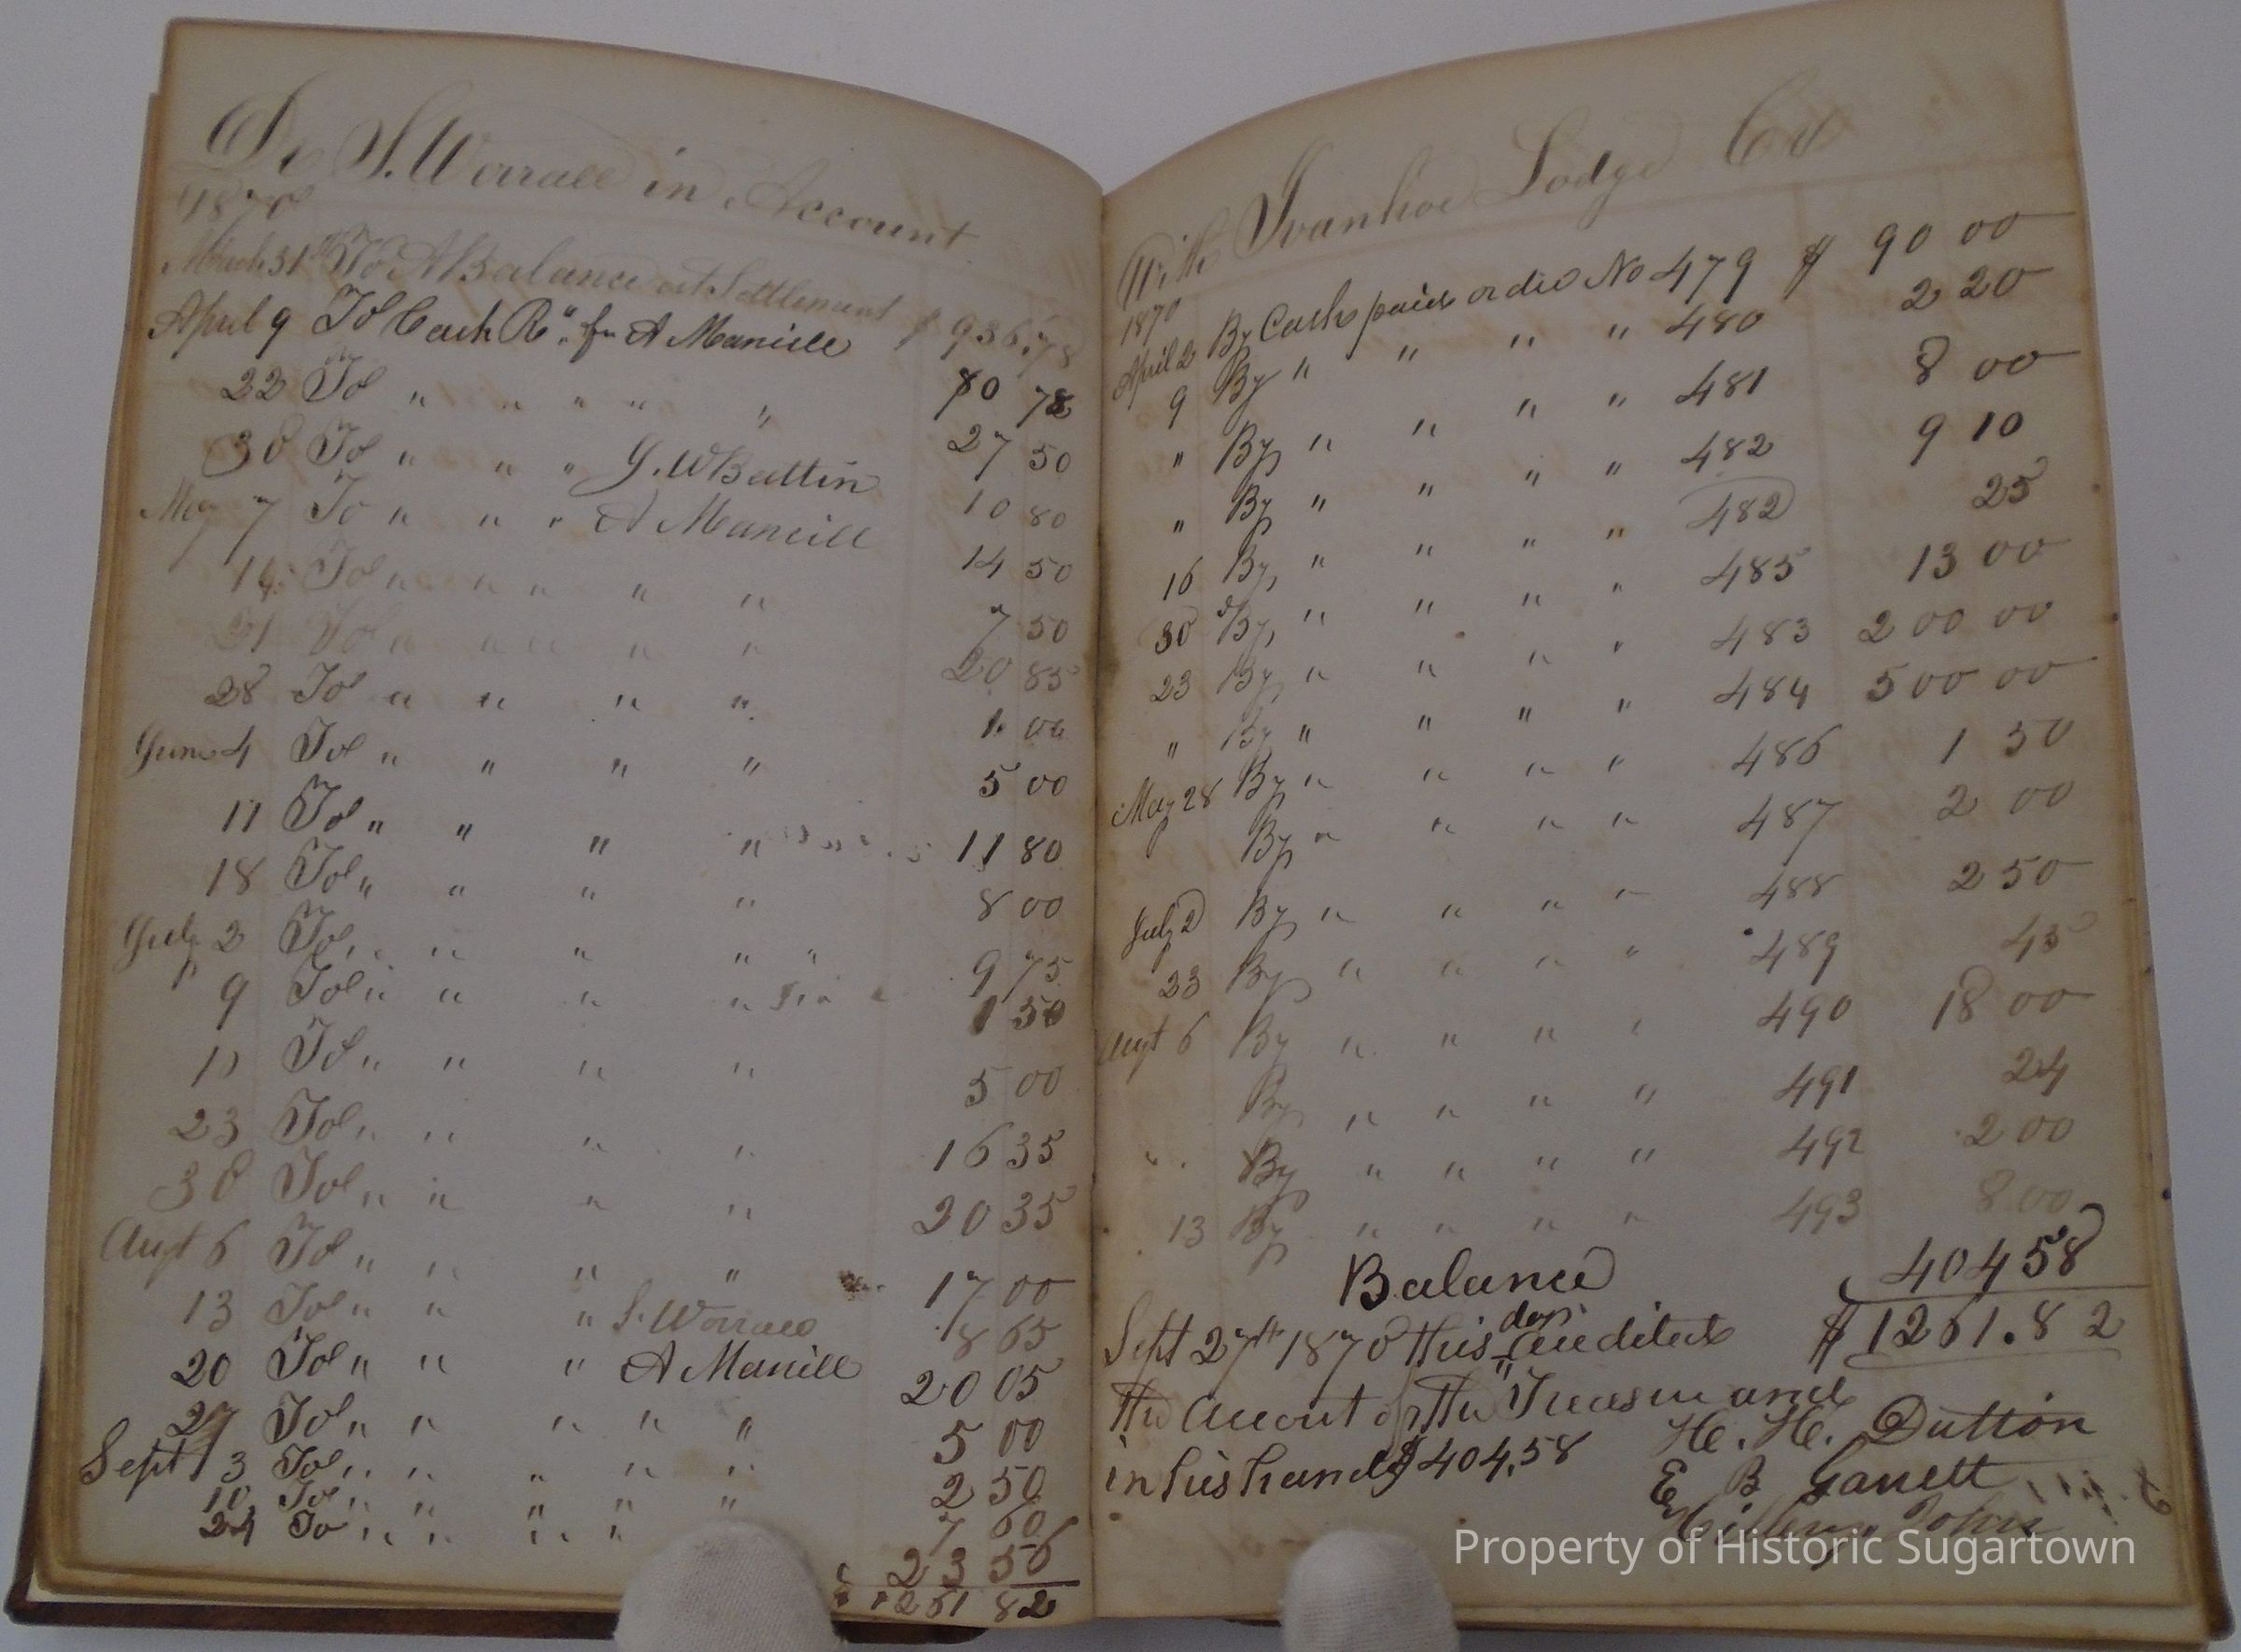 Dr S. Worrall in Account
1870
March 31st To A Balance at Settlement $ 936.78
April 9 To Cash Rd. fr A Mancill 80 78
22 To " " " " " 27 50
30 To " " " G. W Battin 10 80
May 7 To " " " A Mancill 14 50
14 To " " " " " 7 50
21 To " " " " " 20 85
28 To " " " " 1 00
June 4 To " " " " 5 00
11 To " " " " 11 80
18 To " " " " 8 00
July 2 To " " " " " 9 75
9 To " " " " 1 50
11 To " " " " 5 00
23 To " " " " 16 35
30 To " " " " 20 35
Augt 6 To " " " " 17 00
13 To " " " S. Worrall 8 65
20 To " " " A Mancill 20 05
27 To " " " " " 5 00
Sept 3 To " " " " " 2 50
10 To " " " " " 7 60
24 To " " " " 23 56
1261 82
With Ivanhoe Lodge Cr
1870
April 2 By Cash paid order No 479 $ 90 00
9 By " " " " 480 2 20
" By " " " " 481 8 00
" By " " " " 482 9 10
16 By " " " " 482 25
30 By " " " " 485 13 00
23 By " " " " 483 200 00
" By " " " " 484 500 00
May 28 By " " " " 486 1 50
By " " " " 487 2 00
July 2 By " " " " 488 2 50
23 By " " " " 489 45
Augt 6 By " " " " 490 18 00
By " " " " 491 24
" By " " " " 492 2 00
13 By " " " " 493 8 00
Balance 404 58
$1261.82
Sept 27th 1870 this day audited
the account of the Treasurer and
in his hands $404.58
H. H. Dutton
E B Garrett
John
Property of Historic Sugartown